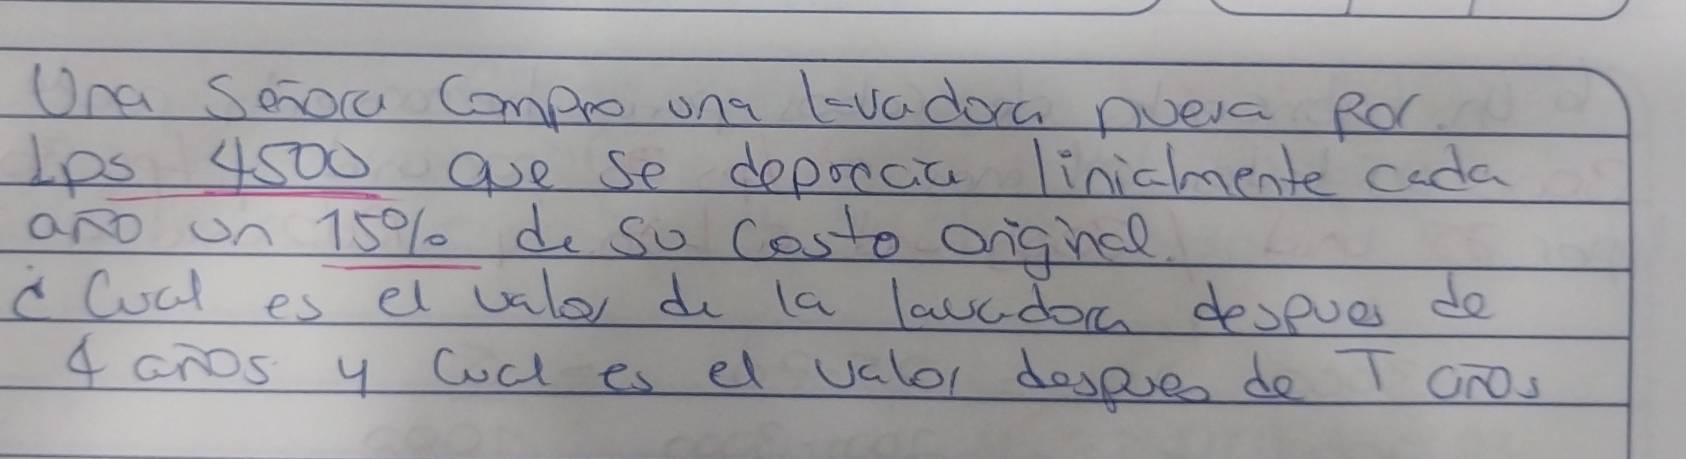 Una Señora Compro una lavadora nueva por.
Lps 4500 que se deprecia linialmente cada
año un 15% de su Costo original.
¿ Cual es el valor de la lavadora despues de
4 años y Cual es el valor despues de T años